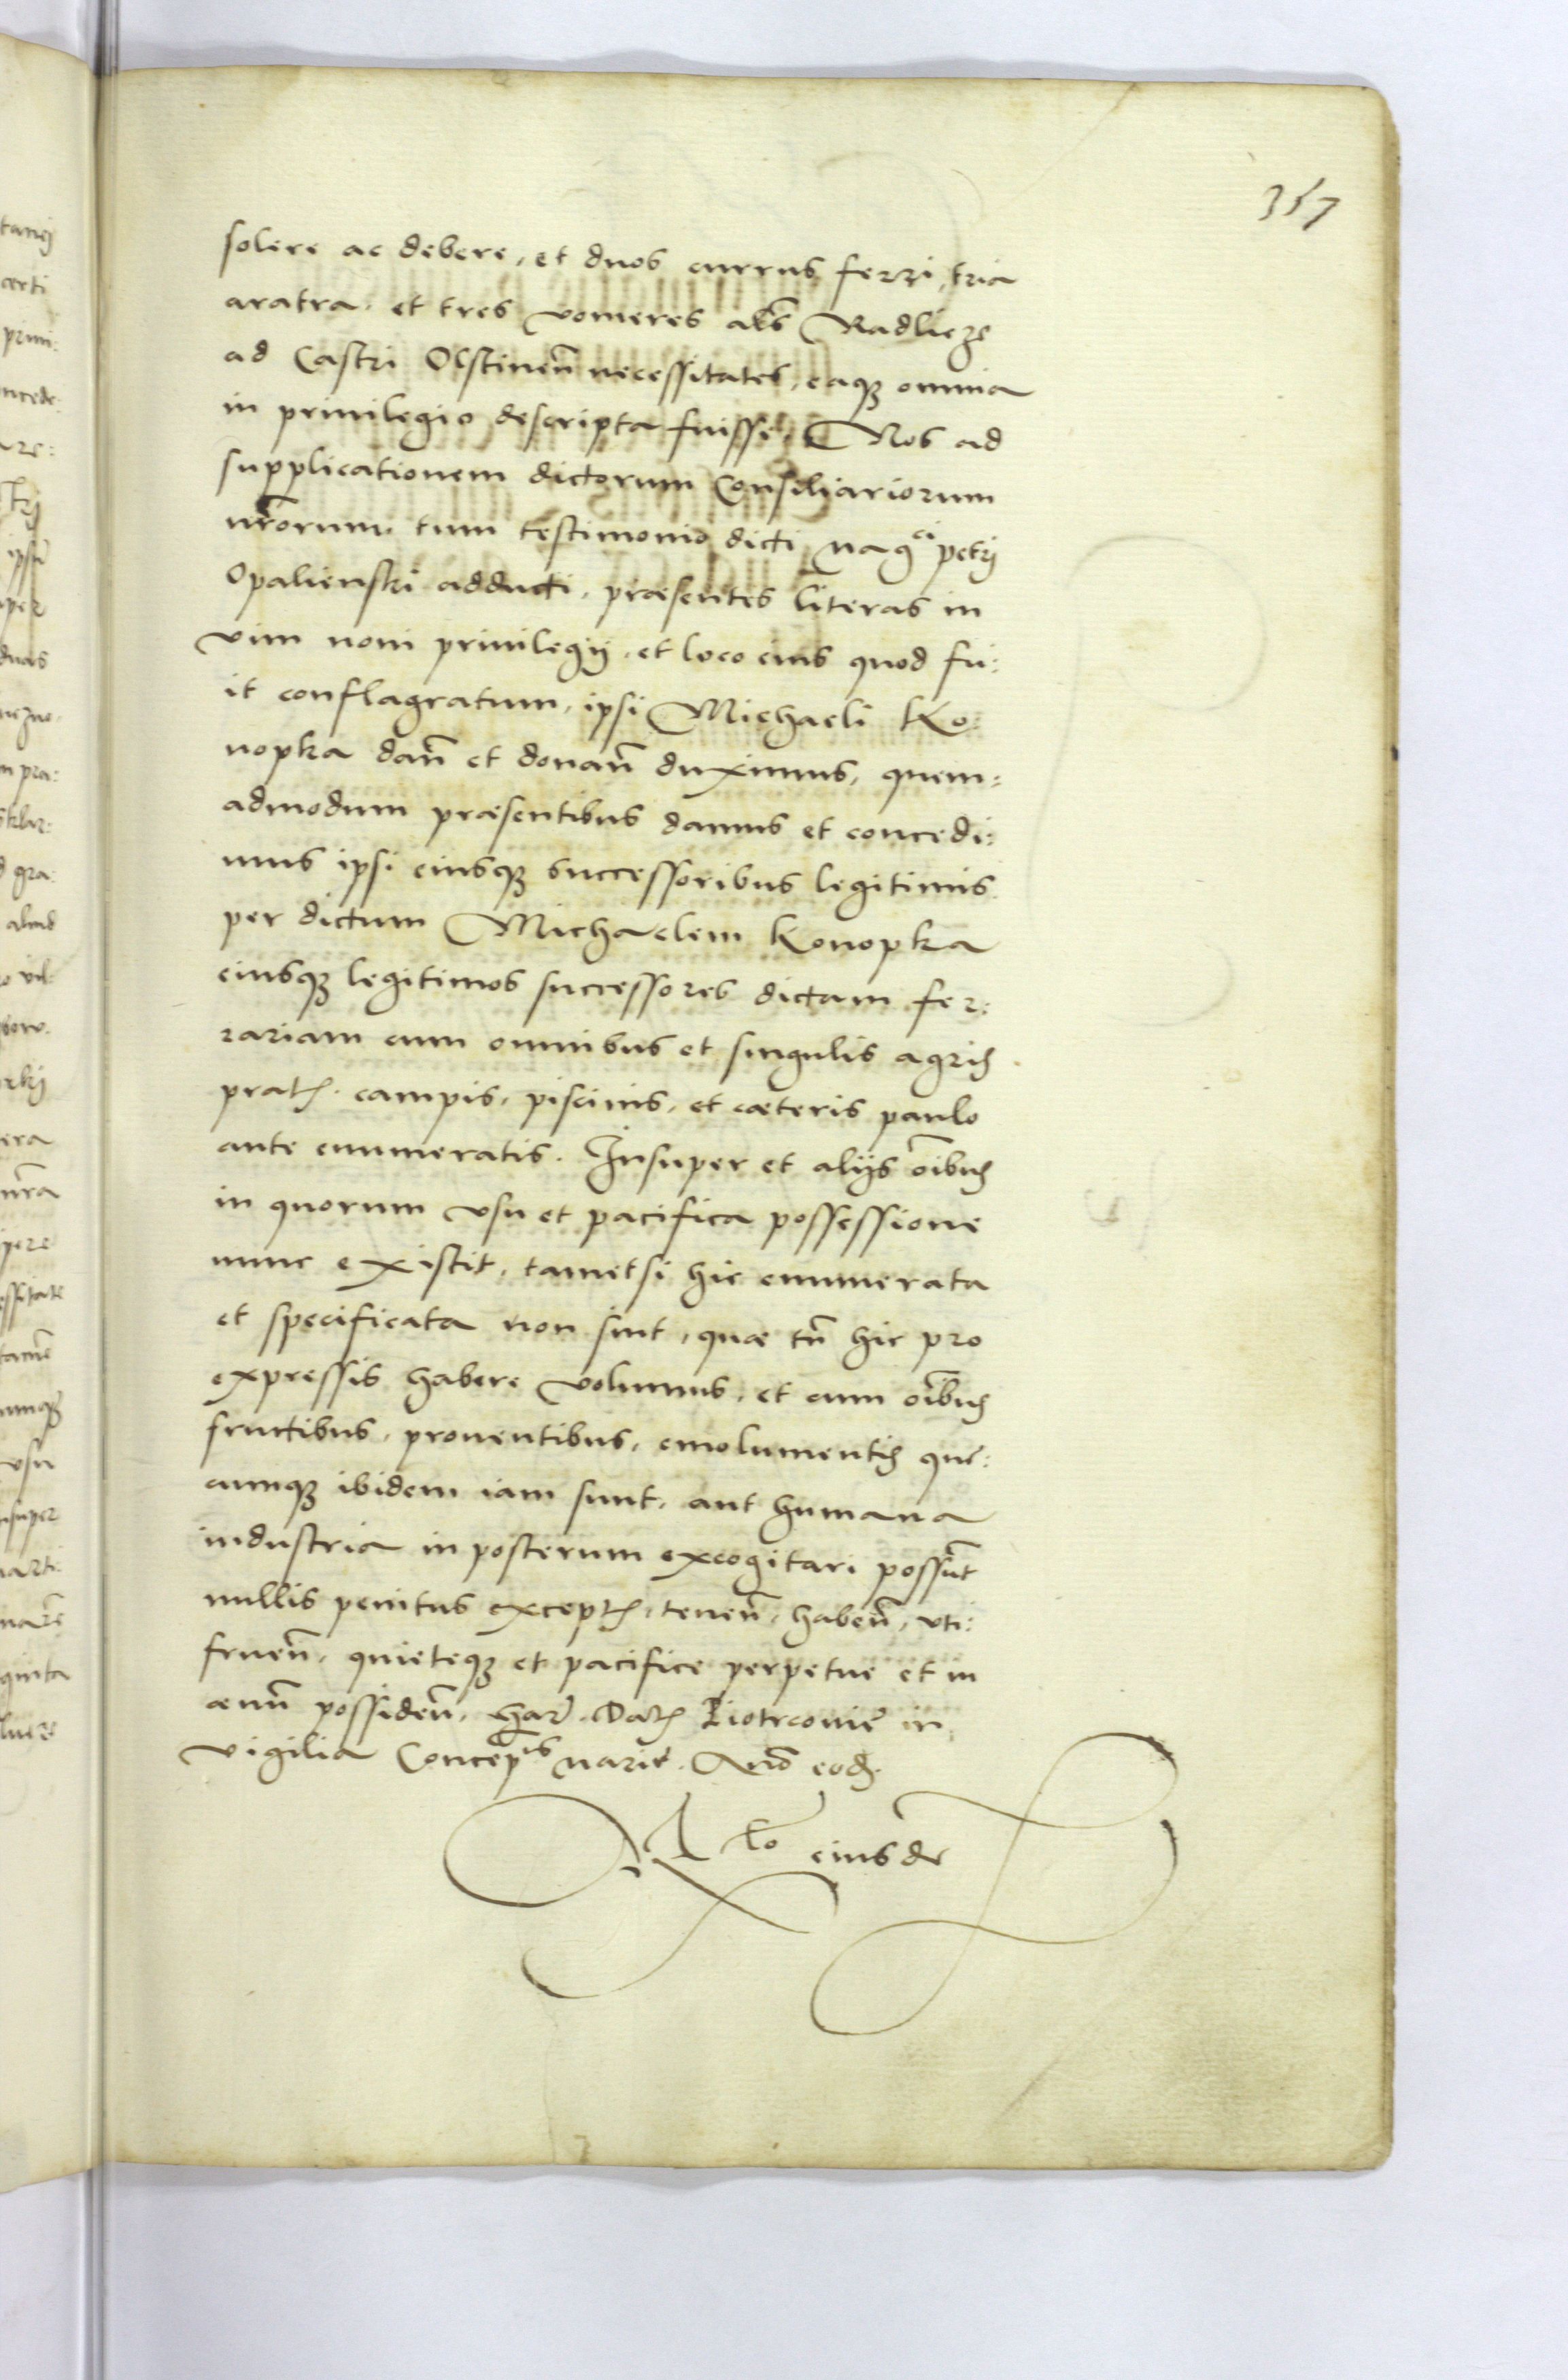 357
solere ac debere, et duos currus ferri, tria
aratra, et tres vomeres als Radlicze
ad Castri Olstinen̄ necessitates, eaqȝ omnia
in priuilegio descripta fuisse. Nos ad
supplicationem dictorum Consiliariorum
nr̄orum, tum testimonio dicti magci petrj
Opalienski adducti, præsentes literas in
vim noui priuilegij, et loco eius quod fu:
it conflagratum, ipsi Michaeli Ko:
nopka dan̄ et donan̄ duximus, quem:
admodum præsentibus damus et concedi:
mus ipsi eiusqȝ successoribus legitimis
per dictum Michaelem Konopka
eiusqȝ legitimos successores dictam fer:
rariam cum omnibus et singulis agris
pratis campis, piscinis, et cæteris paulo
ante enumeratis. Insuper et alijs oībus
in quorum vsu et pacifica possessione
nunc existit, tametsi hic enumerata
et specificata non sint, quæ tn̄ hic pro
expressis habere volumus, et cum oībus
fructibus, prouentibus, emolumentis que:
cunqȝ ibidem iam sunt, aut humana
industria in posterum excogitari possūt
nullis penitus exceptis, tenen̄, haben̄, vti:
fruen̄, quieteqȝ et pacifice perpetue et in
æuū possiden̄. Har. Datis Piotrcoviē in
vigilia Concepnis marie. Año eod.
Rło eiusde